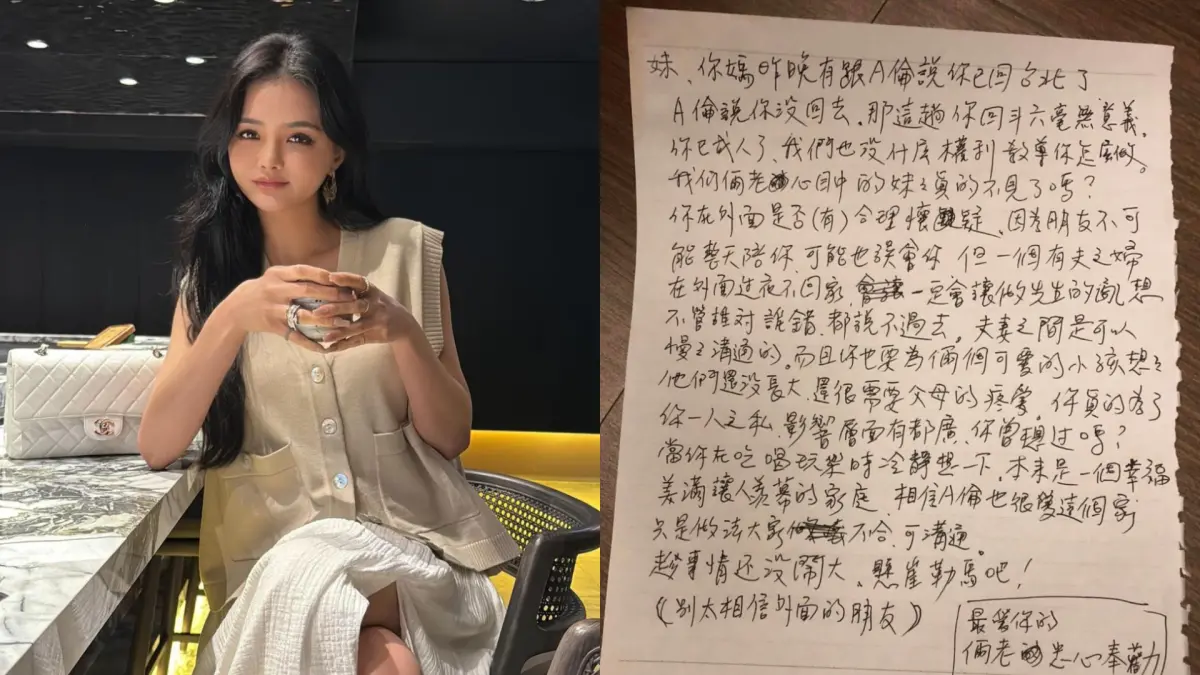 妹、你媽昨晚有跟A倫說你已回台北了
A倫說你沒回去,那這趟你回斗六毫無意義。
你已成人了、我們也沒什麼權利教導你怎麼做。
我們倆老心目中的妹之真的不見了嗎?
你在外面是否(有)合理懷疑,因為朋友不可
能整天陪你,可能也誤會你 但一個有夫之婦
在外面过夜不回家,一定會讓做先生的亂想
不管誰对誰錯、都說不過去。夫妻之間是可以
慢之溝通的。而且你也要為倆個可愛的小孩想之
他們還沒長大、還很需要父母的疼愛。你真的為了
你一人之私、影響層面有都廣、你曾想过嗎?
當你在吃喝玩樂時冷靜想一下。本来是一個幸福
美滿讓人羨慕的家庭 相信A倫也很愛這個家
只是做法大家不合,可溝通。
趁事情还没鬧大、懸崖勒馬吧!
(別太相信外面的朋友)
最愛你的
倆老忠心奉勸